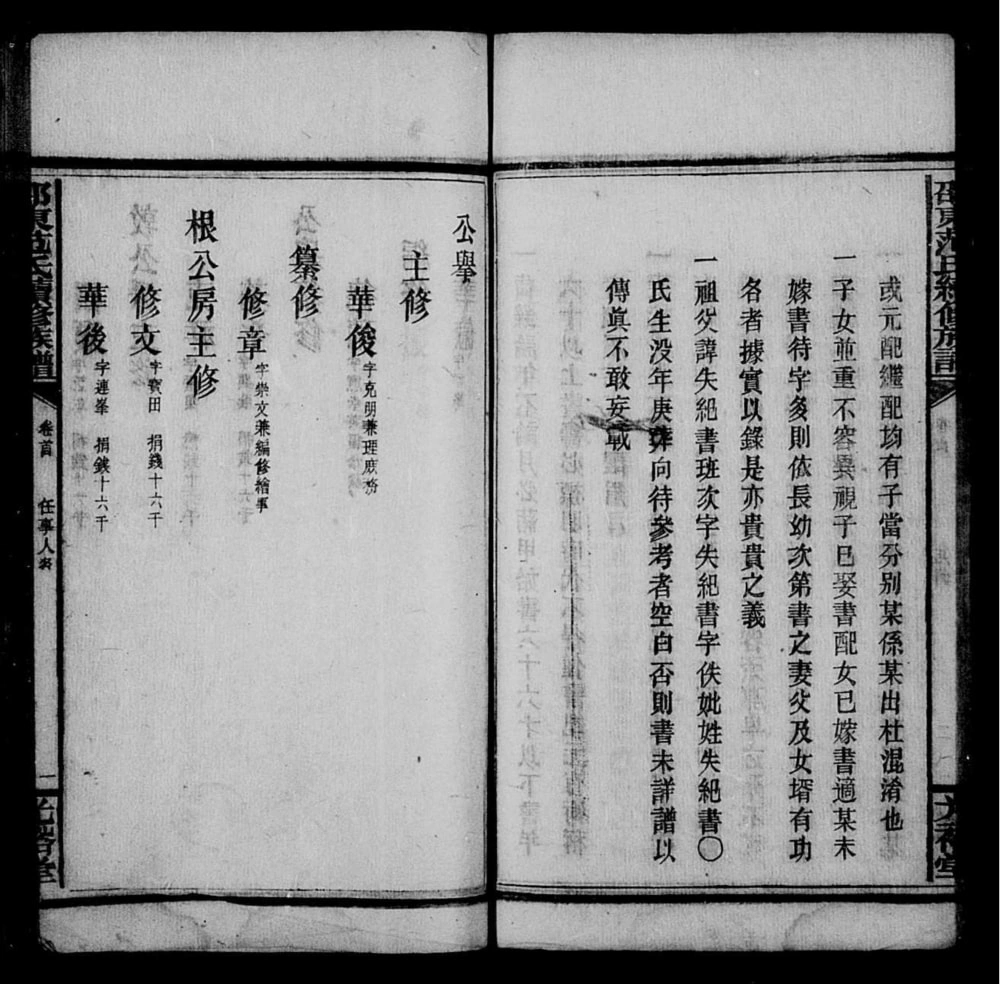 邵東范氏續修族譜
或元配繼配均有子當分別某係某出杜混淆也
一子女並重不容異視子已娶書配女已嫁書適某未
嫁書待字多則依長幼次第書之妻父及女壻有功
名者據實以錄是亦貴貴之義
一祖父諱失紀書班次字失紀書字佚妣姓失紀書〇
氏生没年庚葬向待參考者空白否則書未詳譜以
傳眞不敢妄載
公舉
主修
華俊 字克明兼理庶務
纂修
修章 字崇文兼編修繪事
根公房主修
修文 字寶田 捐錢十六千
華後 字連峯 捐錢十六千
邵東范氏續修族譜 卷首 任事人表 一